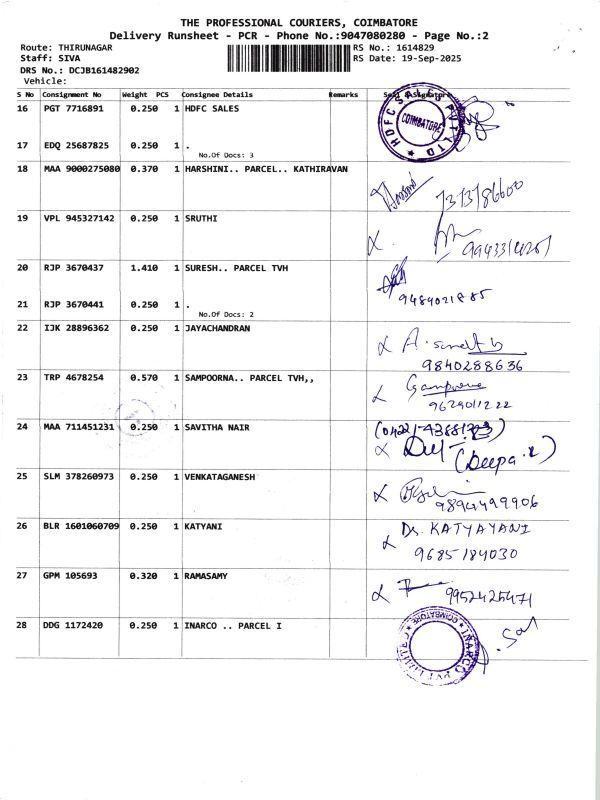 THE PROFESSIONAL COURIERS, COIMBATORE
Delivery Runsheet - PCR - Phone No.:9047080280 - Page No.:2
Route: THIRUNAGAR RS No.: 1614829
Staff: SIVA RS Date: 19-Sep-2025
DRS No.: DCJB161482902
Vehicle:
S No Consignment No Weight PCS Consignee Details Remarks Seal & Signature
16 PGT 7716891 0.250 1 HDFC SALES
HDFC SALES PVT LTD COIMBATORE
17 EDQ 25687825 0.250 1 .
No.Of Docs: 3
18 MAA 9000275080 0.370 1 HARSHINI.. PARCEL.. KATHIRAVAN
7373186600
19 VPL 945327142 0.250 1 SRUTHI
20 RJP 3670437 1.410 1 SURESH.. PARCEL TVH
9484021885
21 RJP 3670441 0.250 1 .
No.Of Docs: 2
22 IJK 28896362 0.250 1 JAYACHANDRAN
9840288636
23 TRP 4678254 0.570 1 SAMPOORNA.. PARCEL TVH,,
9629011222
24 MAA 711451231 0.250 1 SAVITHA NAIR
(Deepa.
25 SLM 378260973 0.250 1 VENKATAGANESH
9894499906
26 BLR 1601060709 0.250 1 KATYANI
Dr. KATYAYANI
9685184030
27 GPM 105693 0.320 1 RAMASAMY
9952425471
28 DDG 1172420 0.250 1 INARCO .. PARCEL I
INARCO PVT LIMITED COIMBATORE